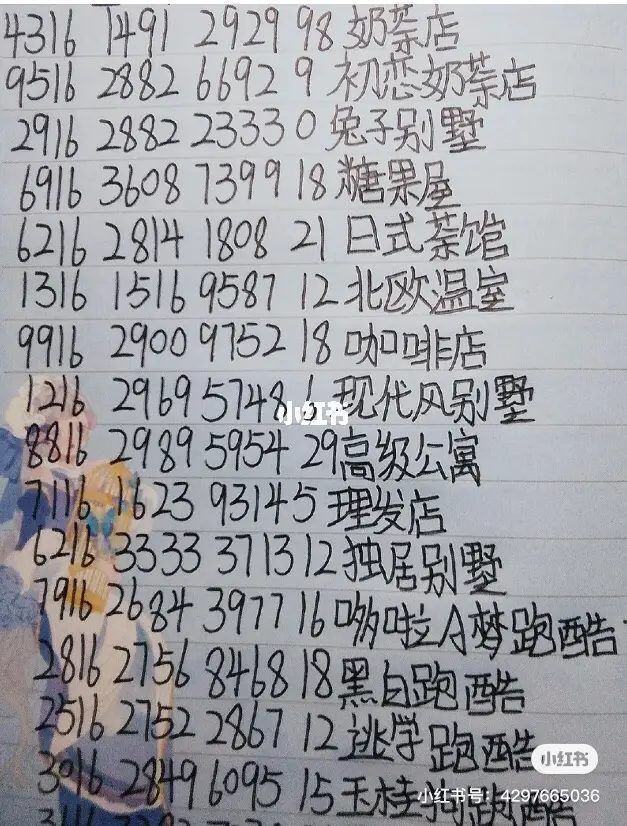 4316 1491 2929 98 奶茶店
9516 2882 6692 9 初恋奶茶店
2916 2882 2333 0 兔子别墅
6916 3608 7399 18 糖果屋
6216 2814 1808 21 日式茶馆
1316 1516 9587 12 北欧温室
9916 2900 9752 18 咖啡店
1216 2969 5748 6 现代风别墅
小红书
8816 2989 5954 29 高级公寓
7116 1623 9314 5 理发店
6216 3333 3713 12 独居别墅
7916 2684 3977 16 哆啦A梦跑酷
2816 2756 8468 18 黑白跑酷
2516 2752 2867 12 逃学跑酷
小红书
3016 2849 6095 15 玉桂狗跑酷
小红书号：4297665036